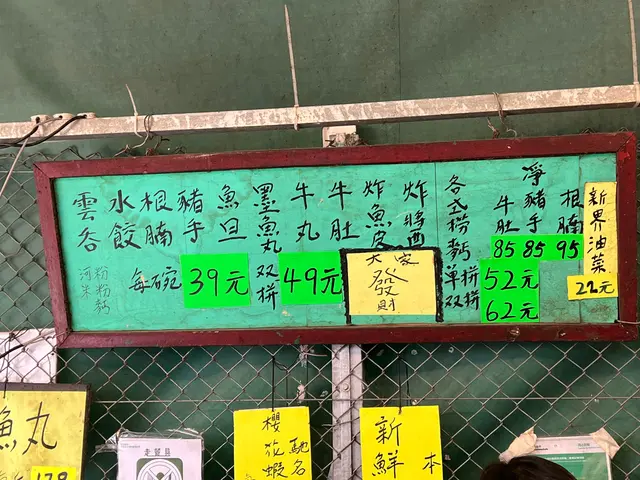 雲吞
水餃
根腩
豬手
魚旦
墨魚丸
牛丸
牛肚
炸魚皮
炸醬
河粉
米粉
麪
每碗
39元
双拼
49元
大家
發財
各式撈麪
單拼
双拼
52元
62元
淨
牛肚
豬手
根腩
85
85
95
新界油菜
22元
魚丸
櫻花蝦
馳名
新鮮
本